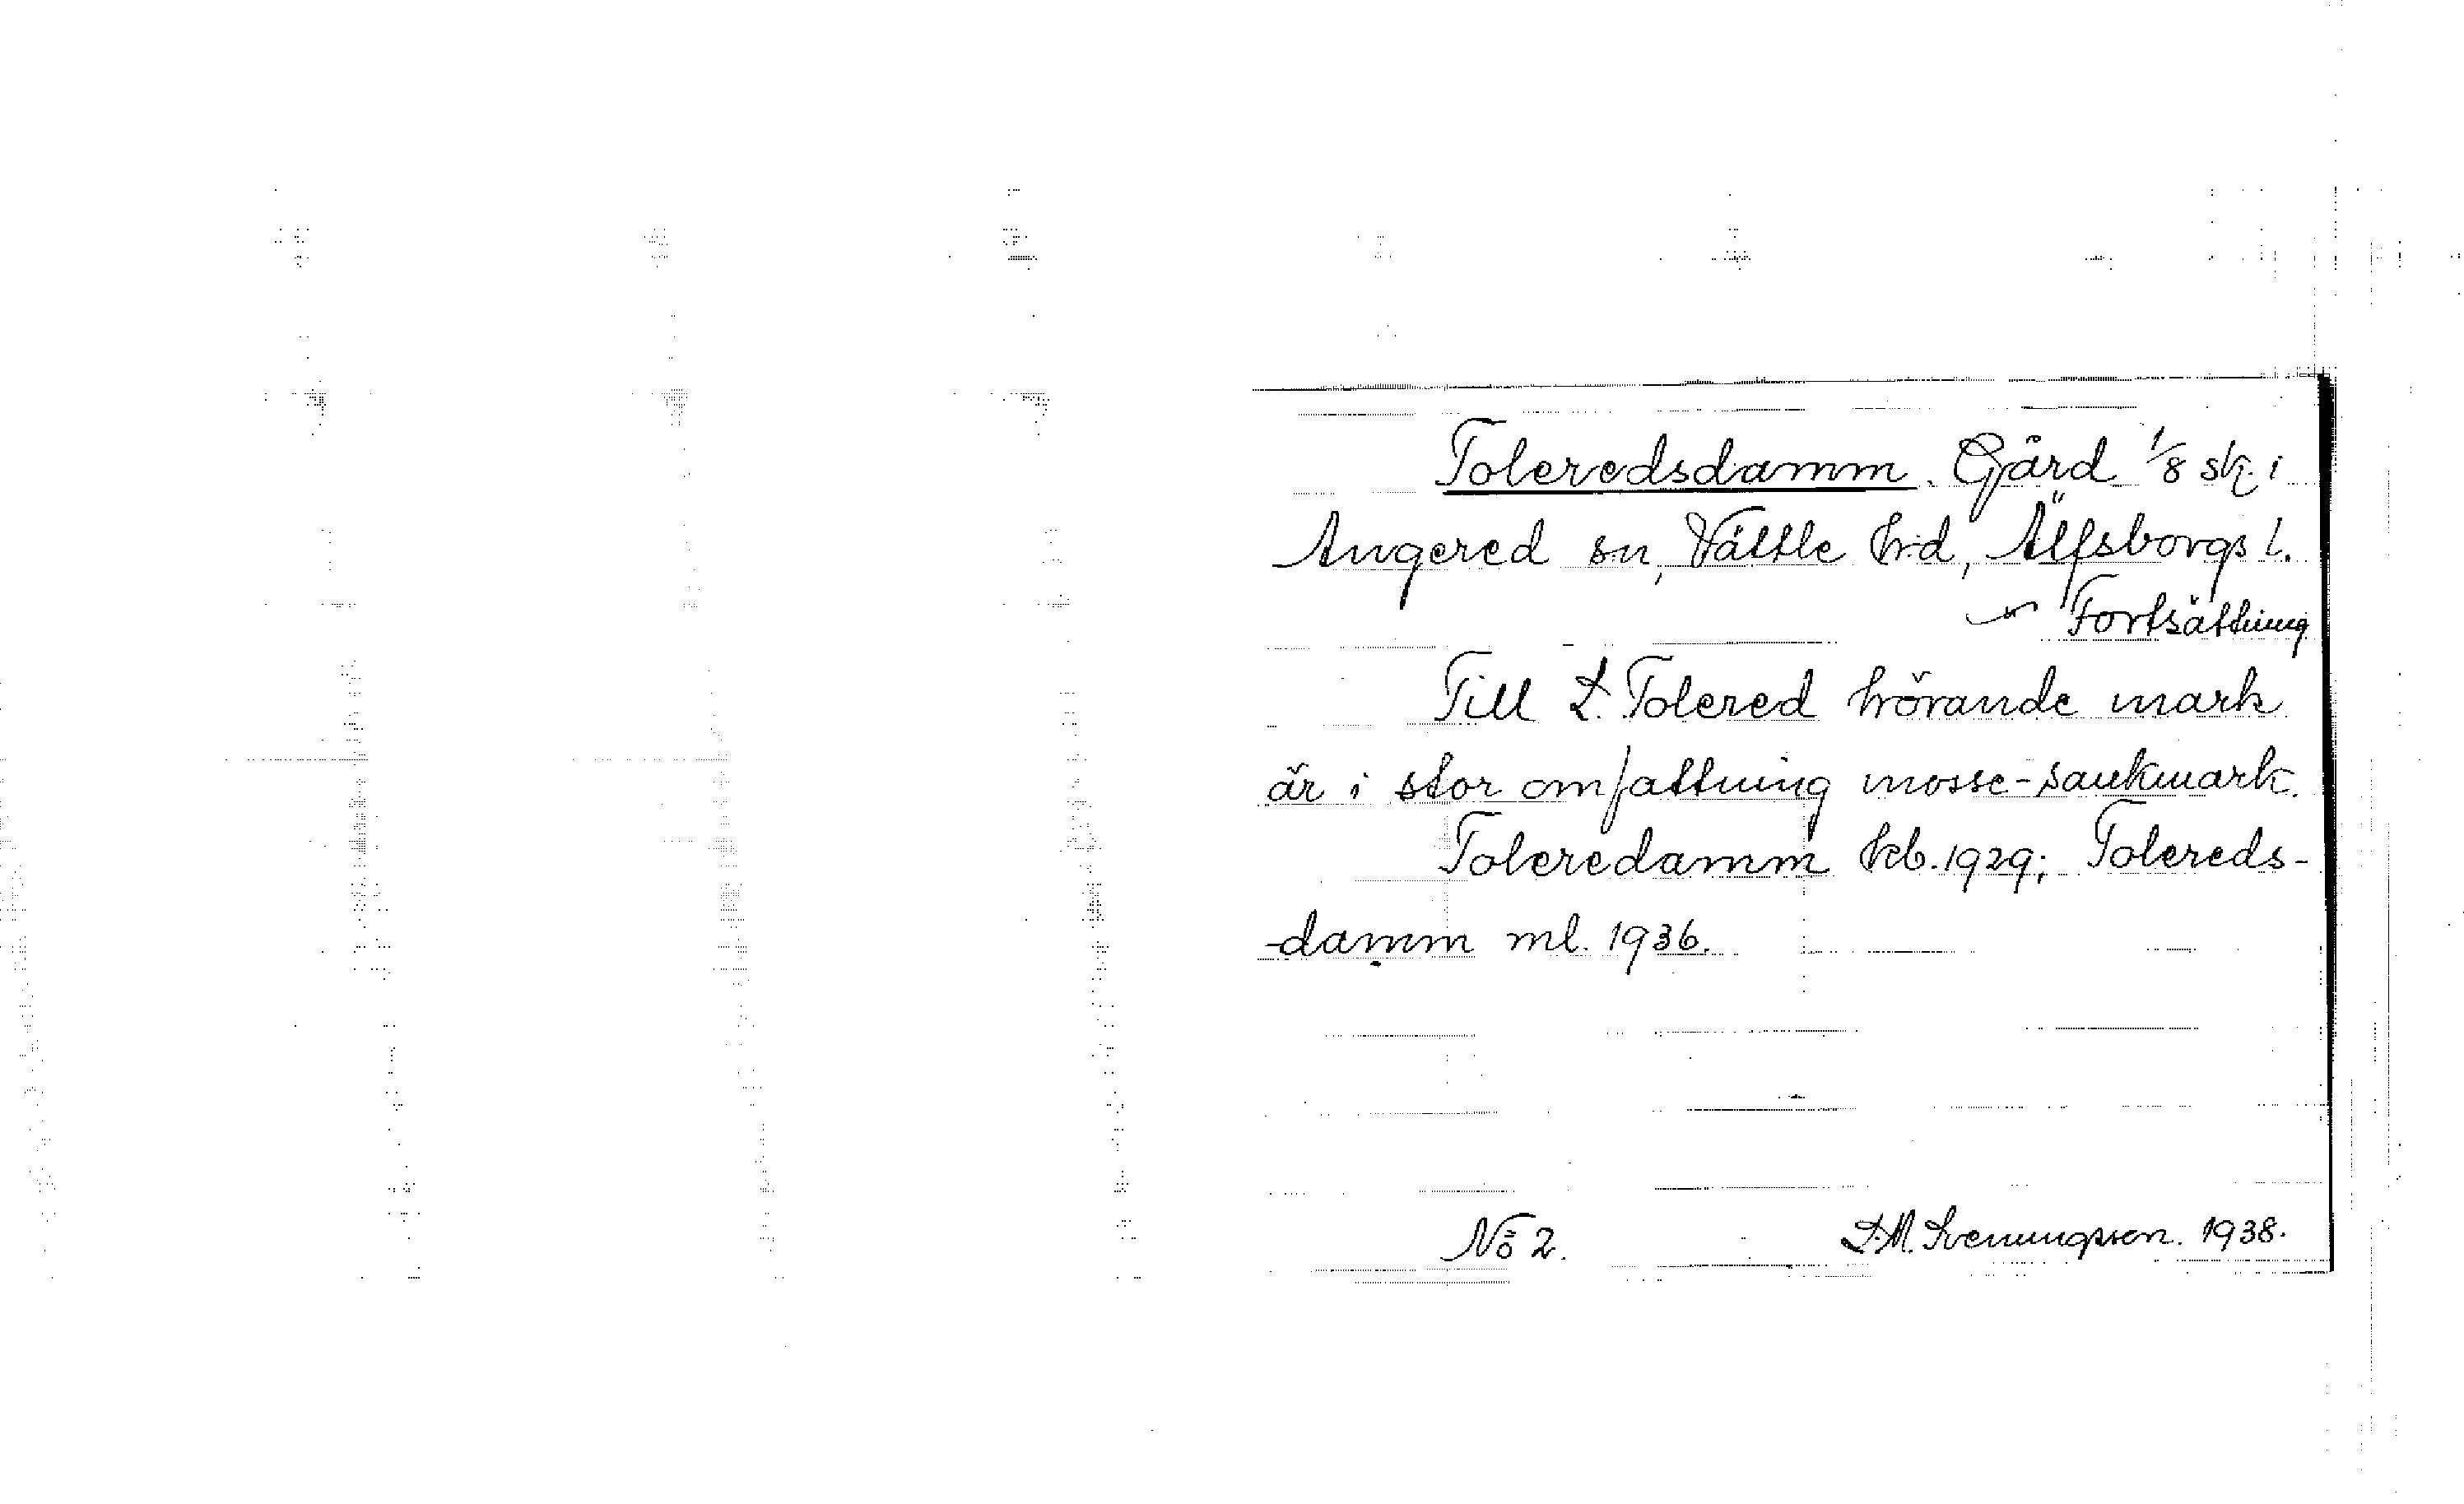 Toleredsdamm. Gård 1/8 sk. i
Angered sn, Vättle hd, Älfsborgs l.
Fortsättning
Till L. Tolered hörande mark
är i stor omfattning mosse-sankmark.
Toleredamm kb. 1929; Tolereds-
-damm ml. 1936.
No 2.
D.M. Svenungsson. 1938.